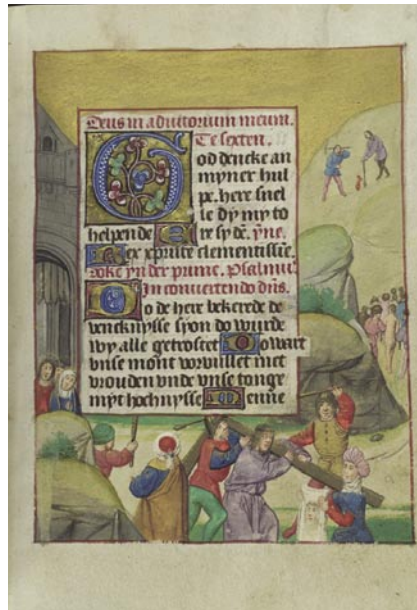 Deus in adiutorium meum.
Te sexten.
God dencke an
myner hul
pe. here snel
le dy my to
helpen de Ere sy dē. ȳne.
Rex xp̄riste clementissīe.
soke yn der prime. Psalmus
In convertendo dn̄s.
Do de here bekerde de
vencknysse syon do wurde
wy alle getrostet Do wart
vnse mont vorvullet met
vrouden vnde vnse tonge
myt hochnysse